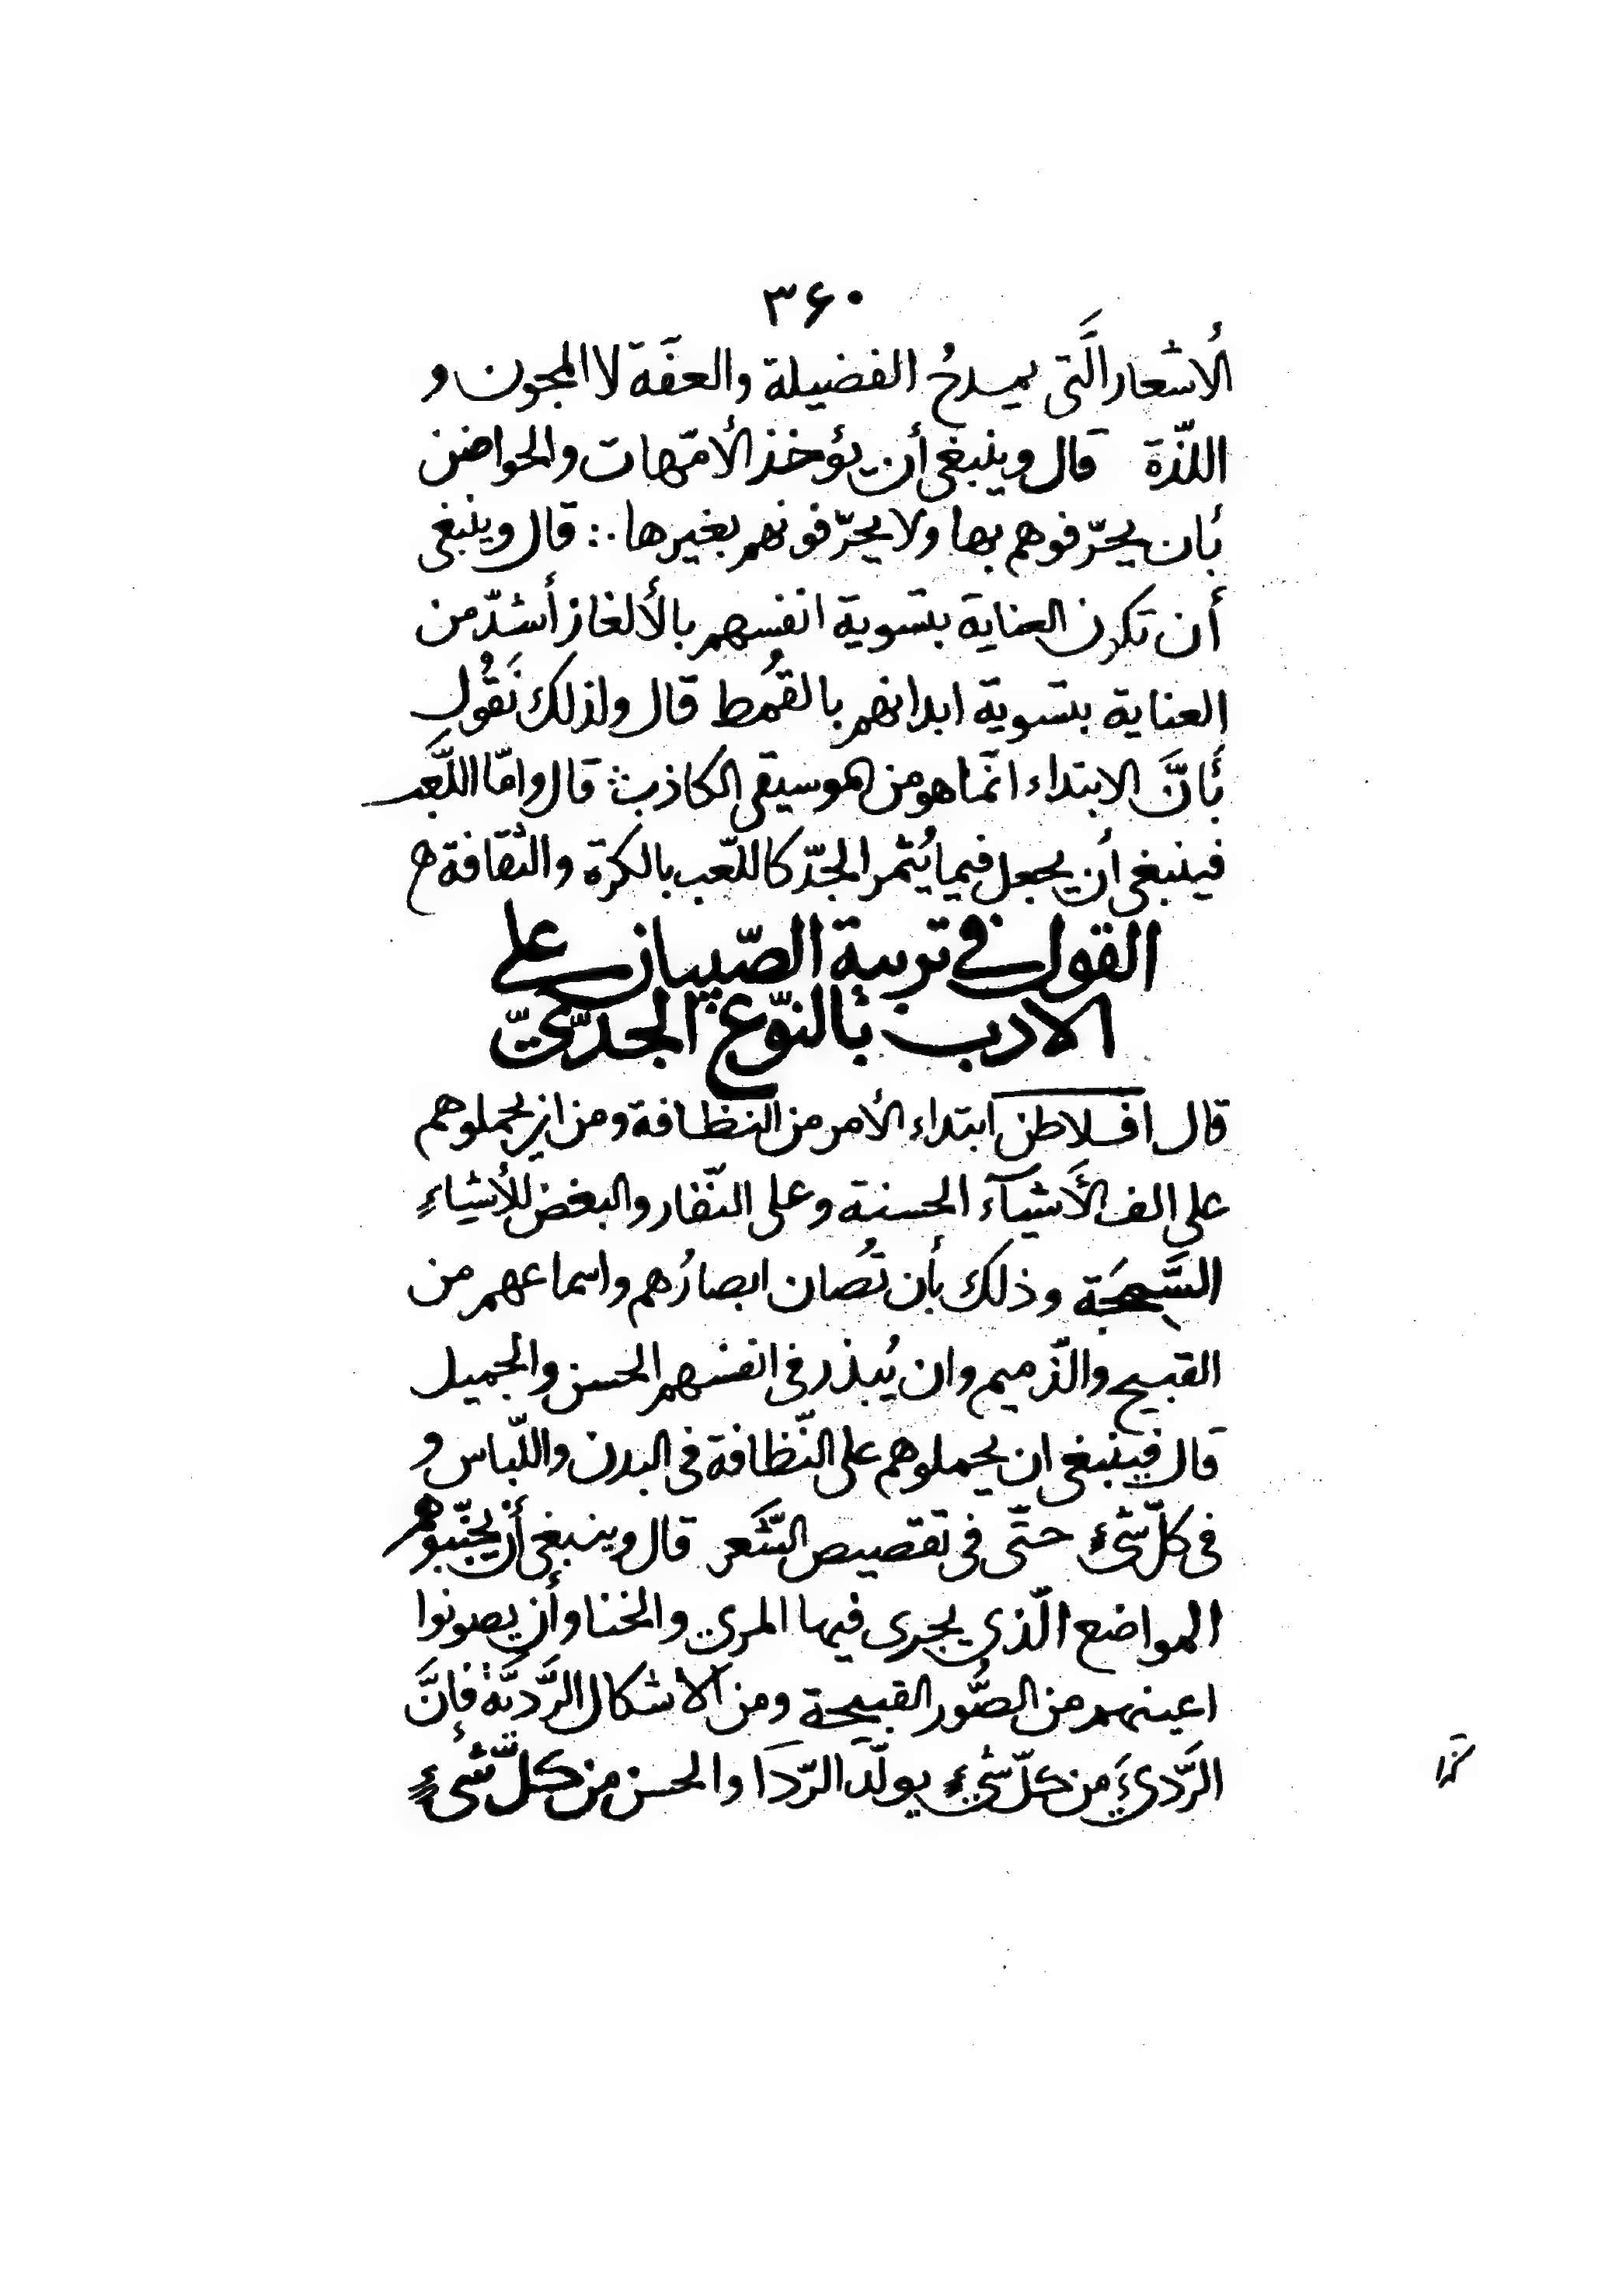 ۳۶۰
الأشعار الَّتى يمدحُ الفضيلة والعفّة لا المجون و
اللذّة قال وينبغى أن يؤخذ الأمّهات والحواضن
بأن يحرّفوهم بها ولا يحرّفونهم بغيرها ∴ قال وينبغى
أن تكون العناية بتسوية انفسهم بالألغاز أشدّ من
العناية بتسوية ابدانهم بالقُمط قال ولذلك نَقُول
بأنَّ الابتداء انّما هو من هموسيقى الكاذب قال وامّا اللّعب
فينبغى أن يجعل فيما يُثمر الجدّ كاللّعب بالكرة والثقافة
القول فى تربية الصّبيان على
الادب بالنّوع الجدّىّ
قال افلاطن ابتداء الأمر من النظافة ومن ان يحملوهم
على الف الأَشيآء الحسنة وعلى النّفار والبغض للأشياءٍ
وذلك بأن تُصان ابصارُهم واسماعهم من
القبيح والذّميم وان يُبذر فى انفسهم الحسن والجميل
قال فينبغى ان يحملوهم على النّظافة فى البدن واللّباس و
فى كلّ شىءٍ حتّى فى تقصيص الشَّعر قال وينبغى أن يجنّبوهم
المواضع الّذى يجرى فيها المرى والخنا وأن يصونوا
اعينهم من الصُّور القبيحة ومن الاشكال الرَّديّة فانَّ
الرَّدىَٔ من كلّ شىءٍ يولّد الرّدَا والحسن من كلّ شىءٍ